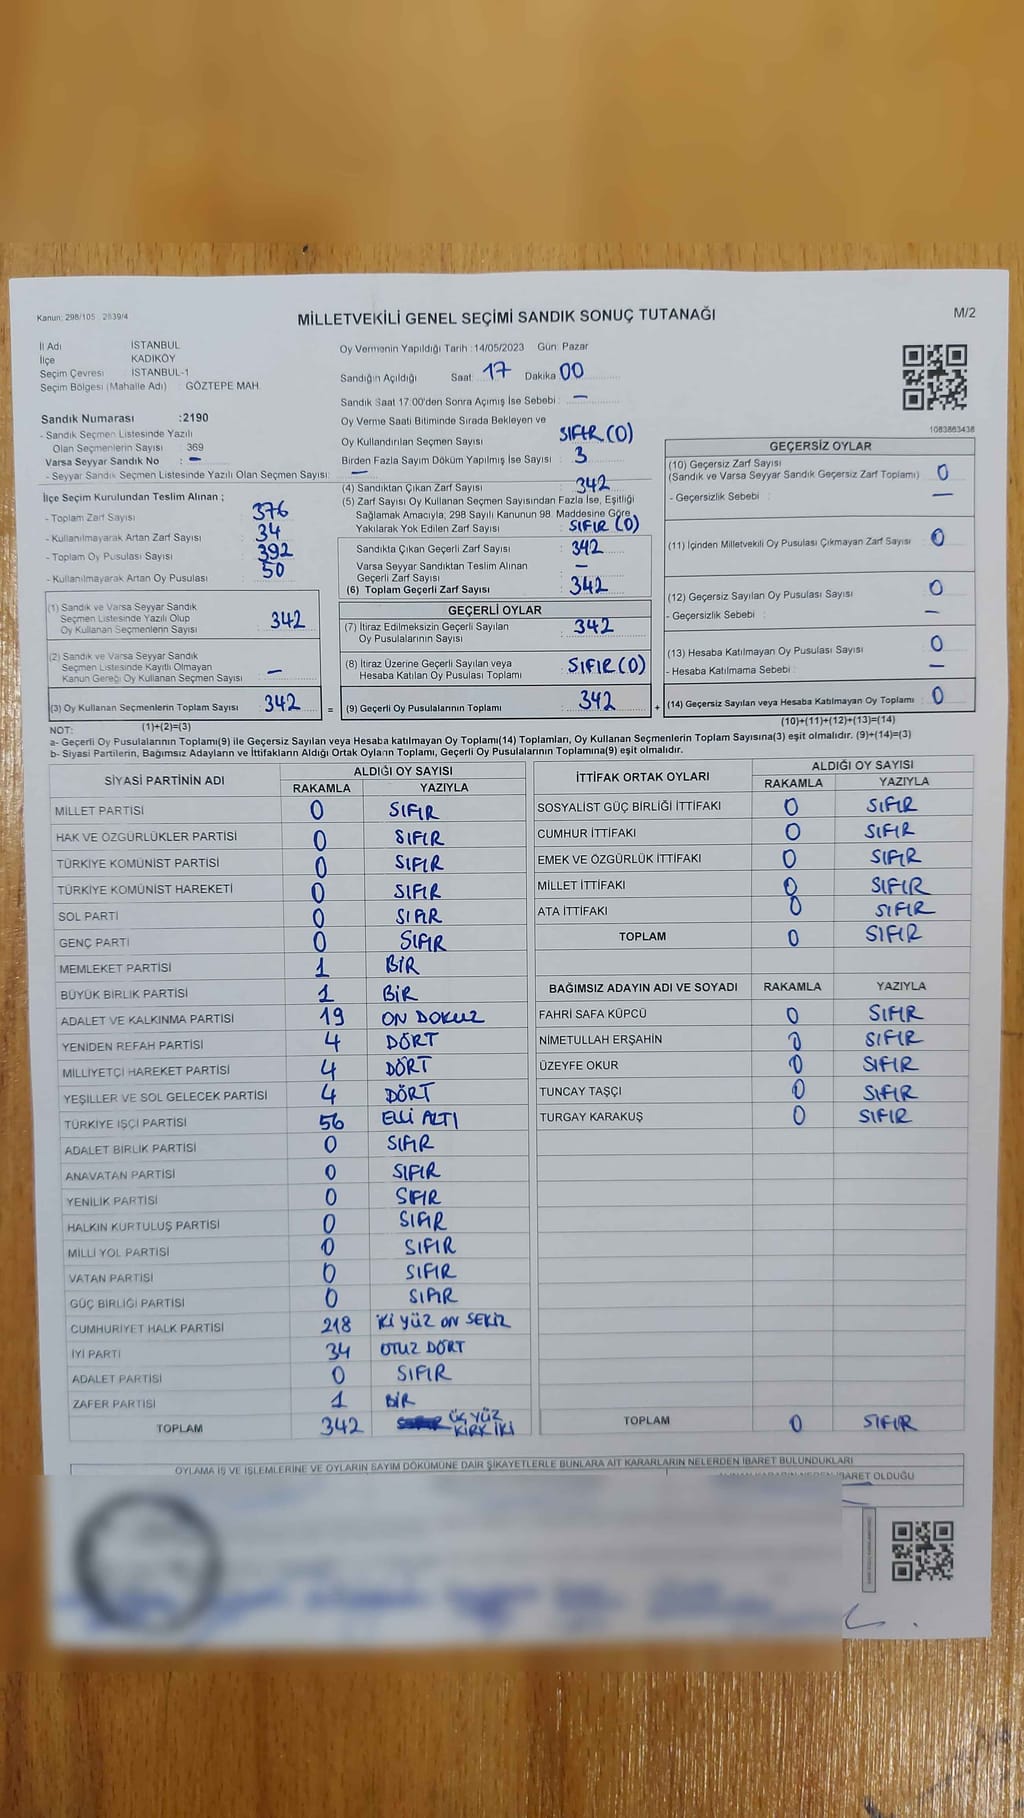 Kanun: 298/105 2839/4
MİLLETVEKİLİ GENEL SEÇİMİ SANDIK SONUÇ TUTANAĞI
M/2
İl Adı İSTANBUL
İlçe KADIKÖY
Seçim Çevresi İSTANBUL-1
Seçim Bölgesi (Mahalle Adı) : GÖZTEPE MAH.
Sandık Numarası :2190
- Sandık Seçmen Listesinde Yazılı
Olan Seçmenlerin Sayısı : 369
Varsa Seyyar Sandık No : -
- Seyyar Sandık Seçmen Listesinde Yazılı Olan Seçmen Sayısı: -
İlçe Seçim Kurulundan Teslim Alınan ;
- Toplam Zarf Sayısı : 376
- Kullanılmayarak Artan Zarf Sayısı : 34
- Toplam Oy Pusulası Sayısı : 392
- Kullanılmayarak Artan Oy Pusulası : 50
(1) Sandık ve Varsa Seyyar Sandık
Seçmen Listesinde Yazılı Olup
Oy Kullanan Seçmenlerin Sayısı : 342
(2) Sandık ve Varsa Seyyar Sandık
Seçmen Listesinde Kayıtlı Olmayan
Kanun Gereği Oy Kullanan Seçmen Sayısı : -
(3) Oy Kullanan Seçmenlerin Toplam Sayısı : 342
Oy Vermenin Yapıldığı Tarih :14/05/2023 Gün: Pazar
Sandığın Açıldığı Saat: 17 Dakika 00
Sandık Saat 17.00'den Sonra Açılmış İse Sebebi : -
Oy Verme Saati Bitiminde Sırada Bekleyen ve
Oy Kullandırılan Seçmen Sayısı SIFIR (0)
Birden Fazla Sayım Döküm Yapılmış İse Sayısı : 3
(4) Sandıktan Çıkan Zarf Sayısı : 342
(5) Zarf Sayısı Oy Kullanan Seçmen Sayısından Fazla İse, Eşitliği
Sağlamak Amacıyla; 298 Sayılı Kanunun 98. Maddesine Göre
Yakılarak Yok Edilen Zarf Sayısı : SIFIR (0)
Sandıkta Çıkan Geçerli Zarf Sayısı : 342
Varsa Seyyar Sandıktan Teslim Alınan
Geçerli Zarf Sayısı : -
(6) Toplam Geçerli Zarf Sayısı : 342
GEÇERLİ OYLAR
(7) İtiraz Edilmeksizin Geçerli Sayılan
Oy Pusulalarının Sayısı : 342
(8) İtiraz Üzerine Geçerli Sayılan veya
Hesaba Katılan Oy Pusulası Toplamı : SIFIR (0)
= (9) Geçerli Oy Pusulalarının Toplamı : 342
1083863438
GEÇERSİZ OYLAR
(10) Geçersiz Zarf Sayısı
(Sandık ve Varsa Seyyar Sandık Geçersiz Zarf Toplamı) : 0
- Geçersizlik Sebebi : -
(11) İçinden Milletvekili Oy Pusulası Çıkmayan Zarf Sayısı : 0
(12) Geçersiz Sayılan Oy Pusulası Sayısı : 0
- Geçersizlik Sebebi : -
(13) Hesaba Katılmayan Oy Pusulası Sayısı : 0
- Hesaba Katılmama Sebebi : -
+ (14) Geçersiz Sayılan veya Hesaba Katılmayan Oy Toplamı : 0
NOT: (1)+(2)=(3)
(10)+(11)+(12)+(13)=(14)
a- Geçerli Oy Pusulalarının Toplamı(9) ile Geçersiz Sayılan veya Hesaba katılmayan Oy Toplamı(14) Toplamları, Oy Kullanan Seçmenlerin Toplam Sayısına(3) eşit olmalıdır. (9)+(14)=(3)
b- Siyasi Partilerin, Bağımsız Adayların ve İttifakların Aldığı Ortak Oyların Toplamı, Geçerli Oy Pusulalarının Toplamına(9) eşit olmalıdır.
SİYASİ PARTİNİN ADI ALDIĞI OY SAYISI
RAKAMLA YAZIYLA
MİLLET PARTİSİ 0 SIFIR
HAK VE ÖZGÜRLÜKLER PARTİSİ 0 SIFIR
TÜRKİYE KOMÜNİST PARTİSİ 0 SIFIR
TÜRKİYE KOMÜNİST HAREKETİ 0 SIFIR
SOL PARTİ 0 SIFIR
GENÇ PARTİ 0 SIFIR
MEMLEKET PARTİSİ 1 BİR
BÜYÜK BİRLİK PARTİSİ 1 BİR
ADALET VE KALKINMA PARTİSİ 19 ON DOKUZ
YENİDEN REFAH PARTİSİ 4 DÖRT
MİLLİYETÇİ HAREKET PARTİSİ 4 DÖRT
YEŞİLLER VE SOL GELECEK PARTİSİ 4 DÖRT
TÜRKİYE İŞÇİ PARTİSİ 56 ELLİ ALTI
ADALET BİRLİK PARTİSİ 0 SIFIR
ANAVATAN PARTİSİ 0 SIFIR
YENİLİK PARTİSİ 0 SIFIR
HALKIN KURTULUŞ PARTİSİ 0 SIFIR
MİLLİ YOL PARTİSİ 0 SIFIR
VATAN PARTİSİ 0 SIFIR
GÜÇ BİRLİĞİ PARTİSİ 0 SIFIR
CUMHURİYET HALK PARTİSİ 218 İKİ YÜZ ON SEKİZ
İYİ PARTİ 34 OTUZ DÖRT
ADALET PARTİSİ 0 SIFIR
ZAFER PARTİSİ 1 BİR
TOPLAM 342 ÜÇ YÜZ
KIRK İKİ
İTTİFAK ORTAK OYLARI ALDIĞI OY SAYISI
RAKAMLA YAZIYLA
SOSYALİST GÜÇ BİRLİĞİ İTTİFAKI 0 SIFIR
CUMHUR İTTİFAKI 0 SIFIR
EMEK VE ÖZGÜRLÜK İTTİFAKI 0 SIFIR
MİLLET İTTİFAKI 0 SIFIR
ATA İTTİFAKI 0 SIFIR
TOPLAM 0 SIFIR
BAĞIMSIZ ADAYIN ADI VE SOYADI RAKAMLA YAZIYLA
FAHRİ SAFA KÜPCÜ 0 SIFIR
NİMETULLAH ERŞAHİN 0 SIFIR
ÜZEYFE OKUR 0 SIFIR
TUNCAY TAŞÇI 0 SIFIR
TURGAY KARAKUŞ 0 SIFIR
TOPLAM 0 SIFIR
OYLAMA İŞ VE İŞLEMLERİNE VE OYLARIN SAYIM DÖKÜMÜNE DAİR ŞİKAYETLERLE BUNLARA AİT KARARLARIN NELERDEN İBARET BULUNDUKLARI
İBARET OLDUĞU